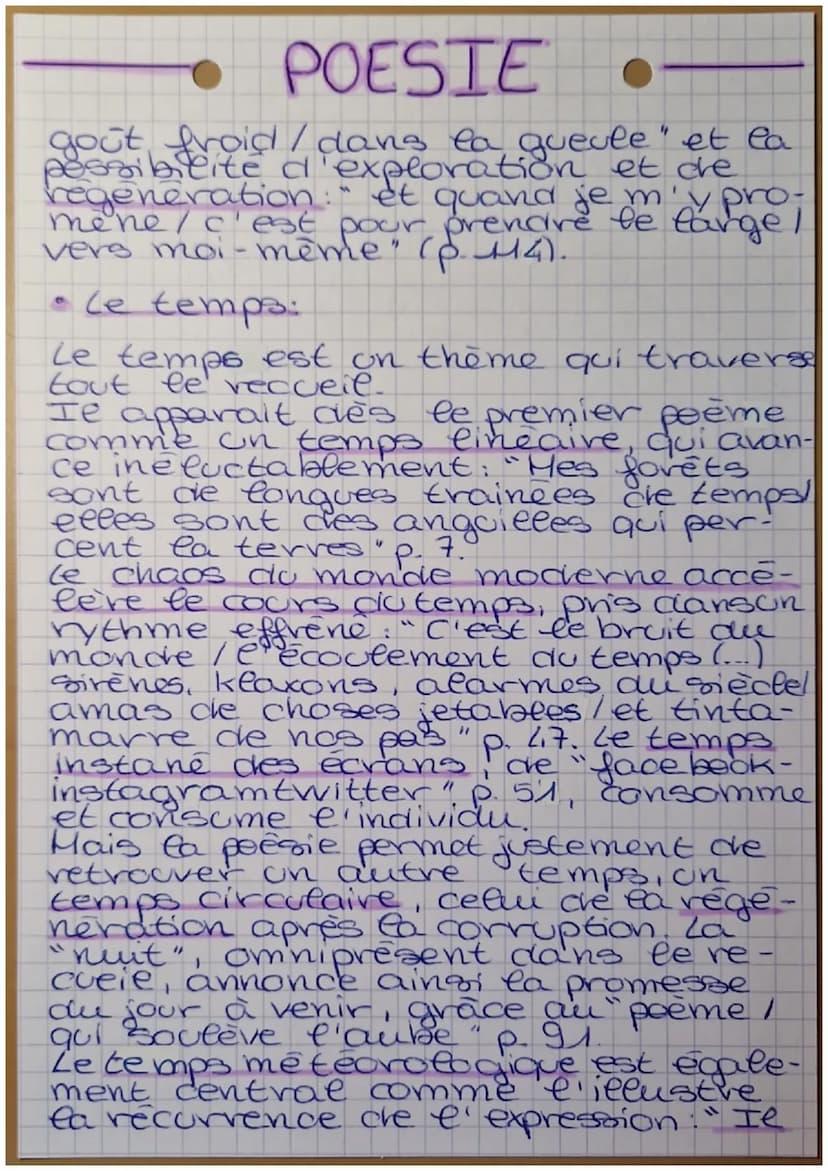 POESIE
goût froid / dans la gueule" et la
possibilité d'exploration et de
régénération : " et quand je m'y pro-
mène / c'est pour prendre le large /
vers moi-même" (p. 114).
• Le temps :
Le temps est un thème qui traverse
tout le recueil.
Il apparait dès le premier poème
comme un temps linéaire, qui avan-
ce inéluctablement : "Mes forêts
sont de longues trainées de temps/
elles sont des anguilles qui per-
cent la terres" p. 7.
Le chaos du monde moderne accé-
lère le cours du temps, pris dans un
rythme effréné : "C'est le bruit du
monde / l'écoulement du temps (...)
sirènes, klaxons, alarmes du siècle/
amas de choses jetables / et tinta-
marre de nos pas" p. 47. Le temps
instané des écrans, de "facebook-
instagramtwitter" p. 51, consomme
et consume l'individu.
Mais la poésie permet justement de
retrouver un autre temps, un
temps circulaire, celui de la régé-
nération après la corruption. La
"nuit", omniprésent dans le re-
cueil, annonce ainsi la promesse
du jour à venir, grâce au "poème /
qui soulève l'aube" p. 91.
Le temps météorologique est égale-
ment central comme l'illustre
la récurrence de l'expression : "Il